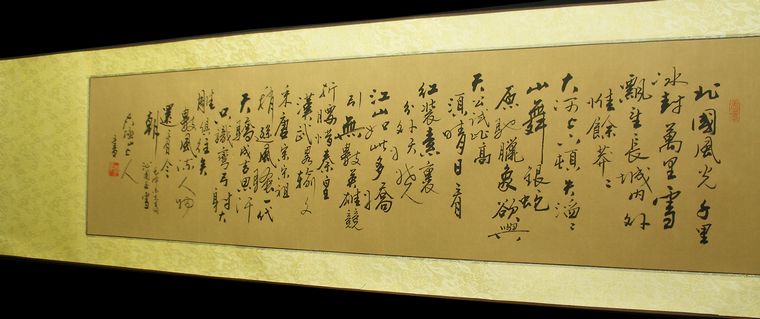 北國風光千里
冰封萬里雪
飄望長城內外
惟餘莽々
大河上下頓失滔々
山舞銀蛇
原馳臘象欲與
天公試比高
須晴日看
紅裝素裹
分外妖嬈
江山如此多嬌
引無數英雄競
折腰惜秦皇
漢武略輸文
采唐宗宋祖
稍遜風騷一代
天驕成吉思汗
只識彎弓射大
雕俱往矣
數風流人物
還看今
朝
沁園春雪
山人
書